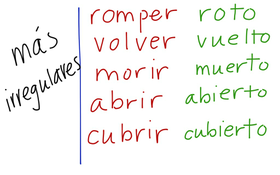 más
irregulares
romper roto
volver vuelto
morir muerto
abrir abierto
cubrir cubierto